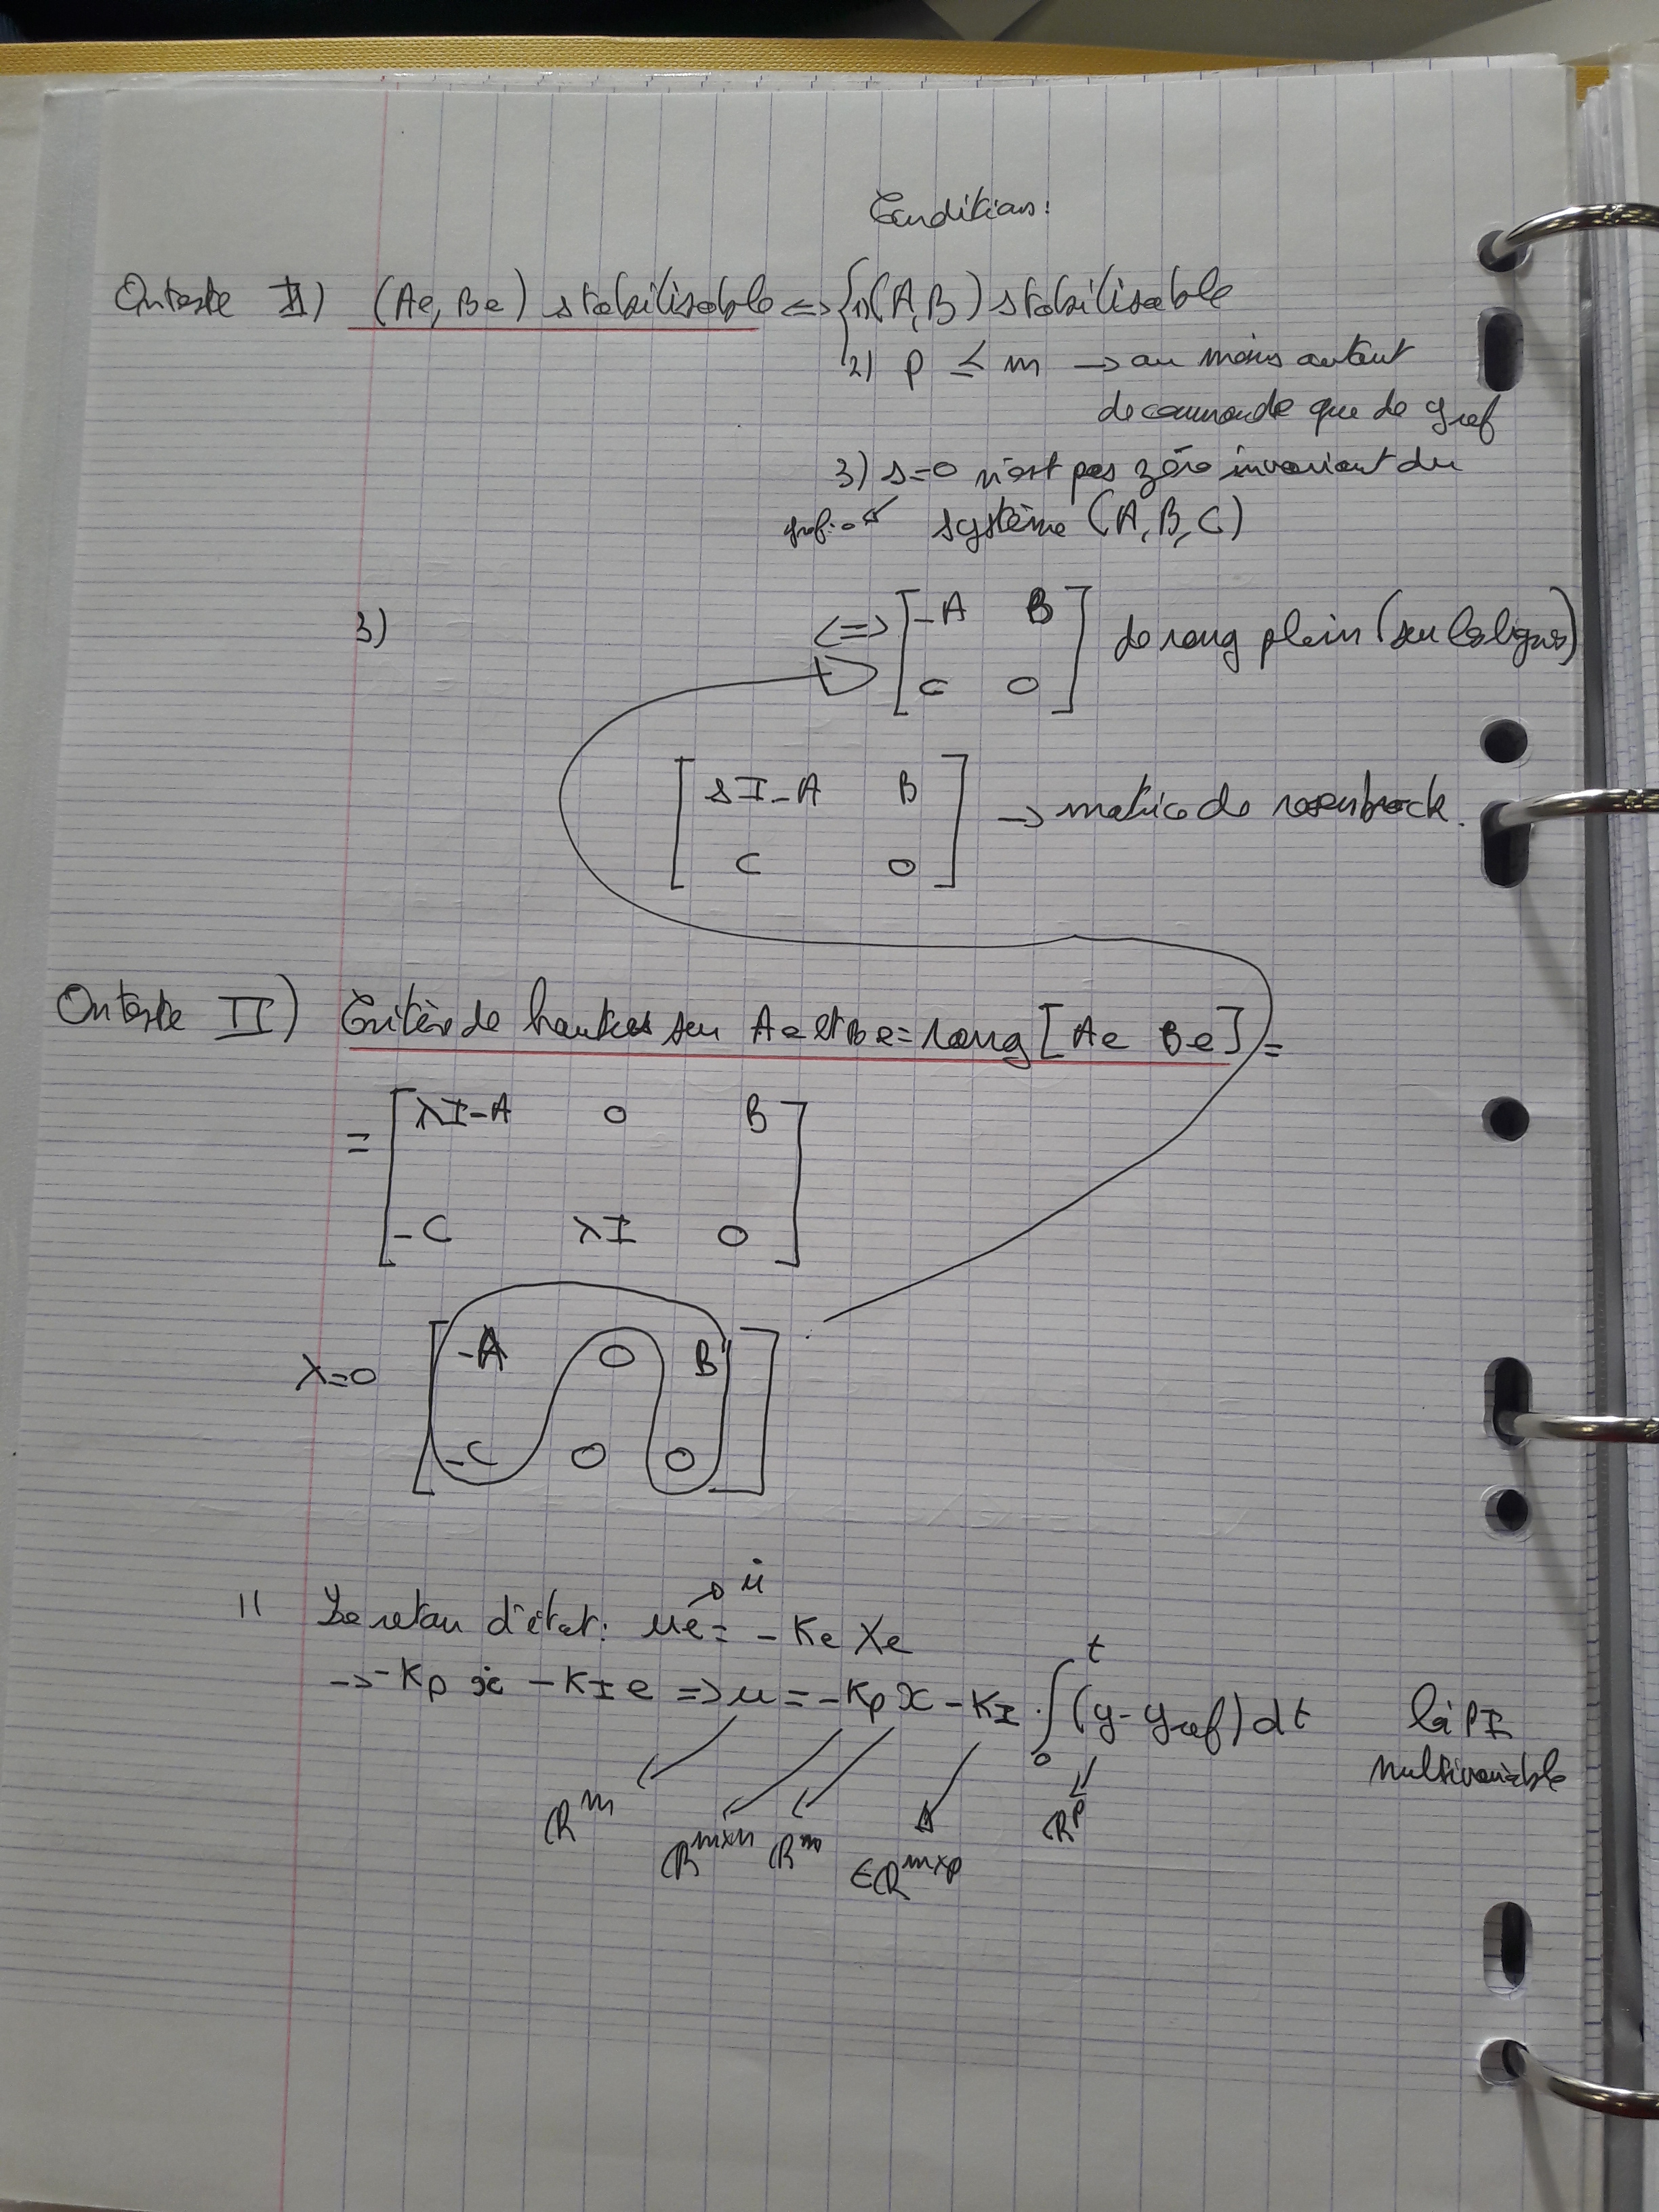 Conditions:
On teste II) (Ae, Be) stabilisable <=> { 1) (A, B) stabilisable
2) p ≤ m -> au moins autant
de commande que de yref
3) s=0 n'est pas zéro invariant du
système (A, B, C)
3) <=> [ -A B ] de rang plein (sur les lignes)
[ C 0 ]
[ sI-A B ] -> matrice de rosenbrock.
[ C 0 ]
On teste II) Critère de hautus sur Ae et Be = rang [Ae Be] =
= [ λI-A 0 B ]
[ -C λI 0 ]
λ=0 [ -A 0 B ]
[ -C 0 0 ]
11 Le retour d'état: ue = -Ke Xe
-> u̇
-> -Kp ẋ - KI e => u = -Kp x - KI · ∫₀ᵗ (y - yref) dt
PI
multivariable
ℝ^m ℝ^mxn ℝ^n ∈ℝ^mxp ℝ^p